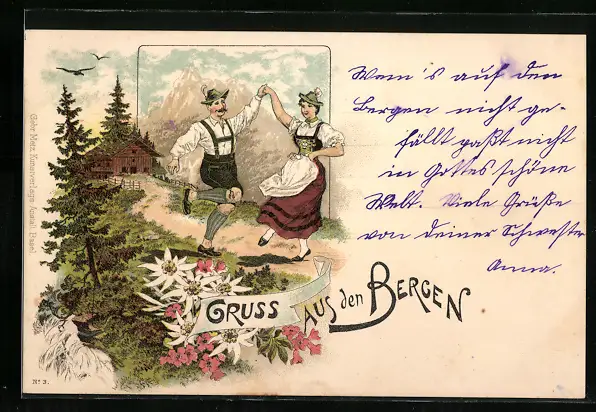 Wem's auf den
Bergen nicht ge-
fällt paßt nicht
in Gottes schöne
Welt. Viele Grüße
von deiner Schwester
Anna.
GRUSS AUS den BERGEN
Gebr. Metz, Kunstverlags-Anstalt, Basel
No 3.